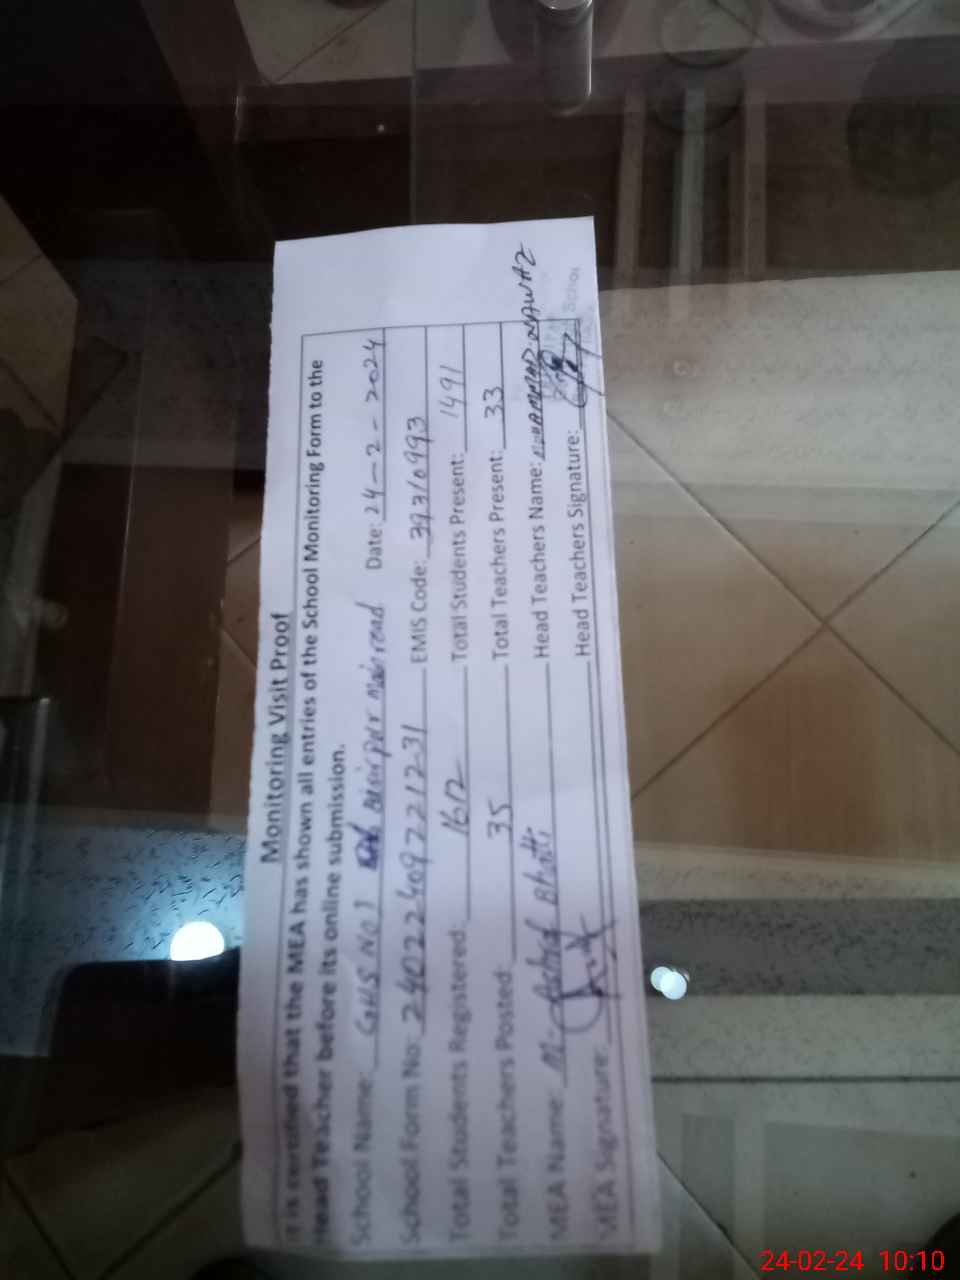 Monitoring Visit Proof
It is certified that the MEA has shown all entries of the School Monitoring Form to the
Head Teacher before its online submission.
School Name: GHS NO 1 Date: 24-2-2024
School Form No: 2402240972 21231 EMIS Code: 39310993
Total Students Registered: 1612 Total Students Present: 1491
Total Teachers Posted: 35 Total Teachers Present: 33
MEA Name: M. Ashraf Bhatti Head Teachers Name: MUHAMMAD NAWAZ
MEA Signature: Head Teachers Signature:
School
24-02-24 10:10